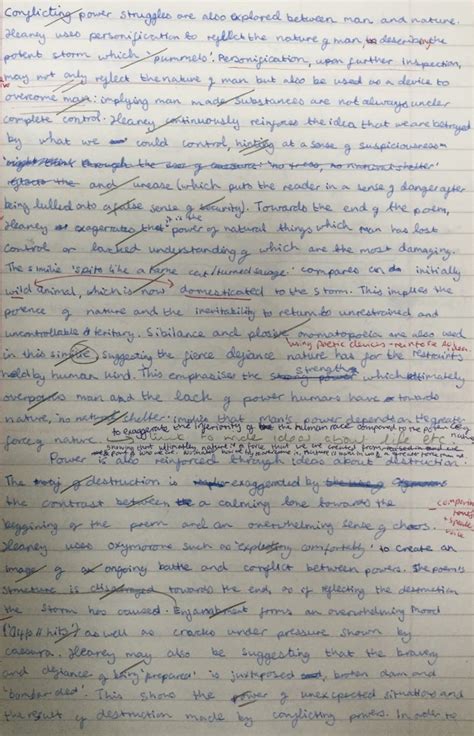 Conflicting power struggles are also explored between man and nature.
Heaney uses personification to reflect the nature of man, to describe the
potent storm which 'pummels'. Personification, upon further inspection,
may not only reflect the nature of man but also be used as a device to
overcome man: implying man made substances are not always under
complete control. Heaney continuously reinforces the idea that we are betrayed
by what we could control, hinting at a sense of suspiciousness
might think through the use of caesura: 'no trees, no natural shelter'
and unease (which puts the reader in a sense of danger after
being lulled into a false sense of security). Towards the end of the poem,
Heaney exagerates that it is the power of natural things which man has lost
control or lacked understanding of which are the most damaging.
The similie 'spits like a tame cat / turned savage.' compares an initially
wild animal, which is now domesticated to the storm. This implies the
potence of nature and the inevitability to return to unrestrained and
uncontrollable territory. Sibilance and plosive onomatopoeia are also used
using poetic devices
in this similie suggesting the fierce defiance nature has for the restraints
held by human kind. This emphasises the strength which ultimately
overpowers man and the lack of power humans have towards
nature, 'no natural shelter' implies that man's power dependent on the greater
force of nature.
to exaggerate the inferiority of the human race compared to the potency of nature
Power is also reinforced through ideas about destruction.
The of destruction is exaggerated by
the contrast between a calming tone towards the
beggining of the poem and an overwhelming sense of chaos.
Heaney uses oxymorons such as 'exploding comfortably' to create an
image of ongoing battle and conflict between powers. The poem's
structure is towards the end as if reflecting the destruction
the storm has caused. Enjambment forms an overwhelming mood
as well as cracks under pressure shown by
caesura. Heaney may also be suggesting that the bravery
and defiance of being 'prepared' is juxtaposed broken down and
'bombarded'. This shows the power of unexpected situations and
the result of destruction made by conflicting powers. In order to